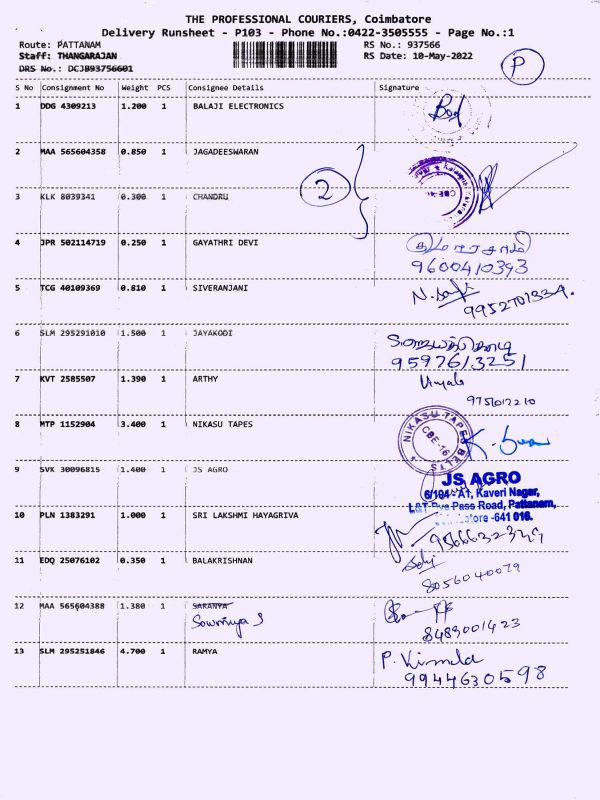 THE PROFESSIONAL COURIERS, Coimbatore
Delivery Runsheet - P103 - Phone No.:0422-3505555 - Page No.:1
Route: PATTANAM RS No.: 937566
Staff: THANGARAJAN RS Date: 10-May-2022
DRS No.: DCJB93756601
P
S No Consignment No Weight PCS Consignee Details Signature
1 DDG 4309213 1.200 1 BALAJI ELECTRONICS
2 MAA 565604358 0.850 1 JAGADEESWARAN
2
3 KLK 8039341 0.300 1 CHANDRU
4 JPR 502114719 0.250 1 GAYATHRI DEVI
9600410393
5 TCG 40109369 0.810 1 SIVERANJANI
6 SLM 295291010 1.500 1 JAYAKODI
9597613251
7 KVT 2585507 1.390 1 ARTHY
8 MTP 1152904 3.400 1 NIKASU TAPES
NIKASU TAPES BELTS
CBE-16
9 SVK 30096815 1.400 1 JS AGRO
JS AGRO
6/194-A1, Kaveri Nagar,
L&T Bye Pass Road, Pattanam,
-641 016.
10 PLN 1383291 1.000 1 SRI LAKSHMI HAYAGRIVA
11 EDQ 25076102 0.350 1 BALAKRISHNAN
8056040079
12 MAA 565604388 1.380 1 SARANYA
Sowmiya S
8489001423
13 SLM 295251846 4.700 1 RAMYA
9944630598